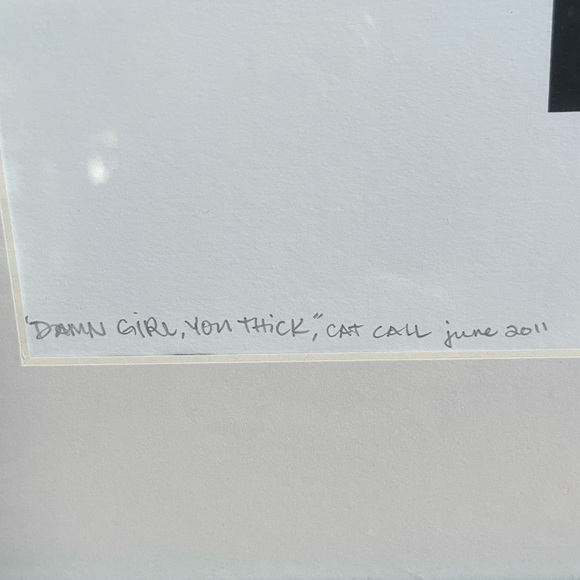 "DAMN GIRL, YOU THICK", CAT CALL june 2011